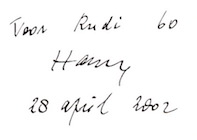 Voor Rudi 60
Harry
28 april 2002